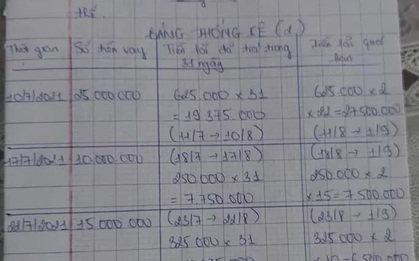 thể
BẢNG THỐNG KÊ (2)
Thời gian Số tiền vay Tiền lãi đã trả trong 31 ngày Tiền lãi quá hạn
10/7/2021 25.000.000 625.000 x 31 625.000 x 2
= 19.375.000 x 22 = 27.500.000
(11/7 → 10/8) (11/8 → 1/9)
17/7/2021 10.000.000 (18/7 → 17/8) (18/8 → 1/9)
250.000 x 31 250.000 x 2
= 7.750.000 x 15 = 7.500.000
22/7/2021 15.000.000 (23/7 → 22/8) (23/8 → 1/9)
325.000 x 31 325.000 x 2